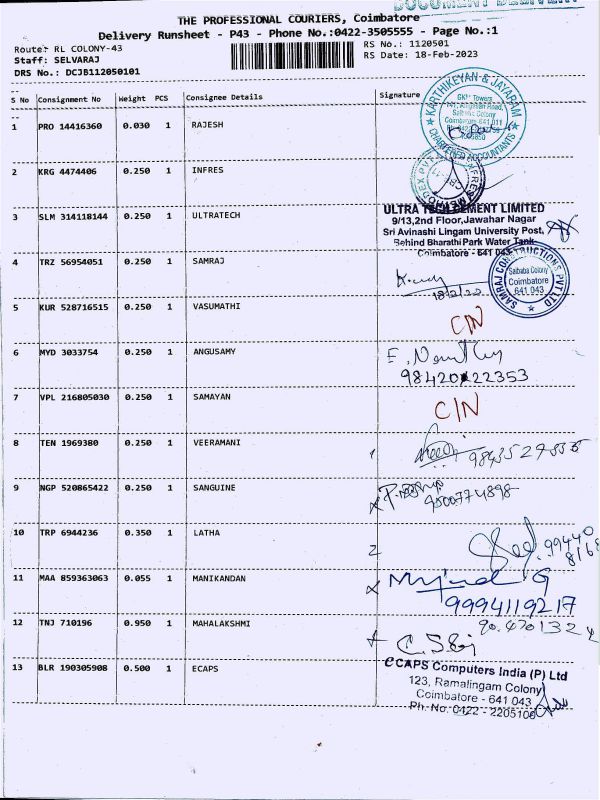 THE PROFESSIONAL COURIERS, Coimbatore
Delivery Runsheet - P43 - Phone No.:0422-3505555 - Page No.:1
Route: RL COLONY-43
RS No.: 1120501
Staff: SELVARAJ
RS Date: 18-Feb-2023
DRS No.: DCJB112050101
S No Consignment No Weight PCS Consignee Details Signature
KARTHIKEYAN & JAYARAM
CHARTERED ACCOUNTANTS
1 PRO 14416360 0.030 1 RAJESH
2 KRG 4474406 0.250 1 INFRES
3 SLM 314118144 0.250 1 ULTRATECH
ULTRA TECH CEMENT LIMITED
9/13,2nd Floor,Jawahar Nagar
Sri Avinashi Lingam University Post,
Behind Bharathi Park Water Tank
Coimbatore - 641 043
4 TRZ 56954051 0.250 1 SAMRAJ
SAMRAJ CONSTRUCTIONS PVT LTD
Saibaba Colony
Coimbatore
641 043
5 KUR 528716515 0.250 1 VASUMATHI
C/N
6 MYD 3033754 0.250 1 ANGUSAMY
98420 22353
7 VPL 216805030 0.250 1 SAMAYAN
C/N
8 TEN 1969380 0.250 1 VEERAMANI
9 NGP 520865422 0.250 1 SANGUINE
9500774898
10 TRP 6944236 0.350 1 LATHA
2
99440
11 MAA 859363063 0.055 1 MANIKANDAN
9994119217
12 TNJ 710196 0.950 1 MAHALAKSHMI
13 BLR 190305908 0.500 1 ECAPS
ECAPS Computers India (P) Ltd
123, Ramalingam Colony
Coimbatore - 641 043
Ph. No. 0422 - 2205106